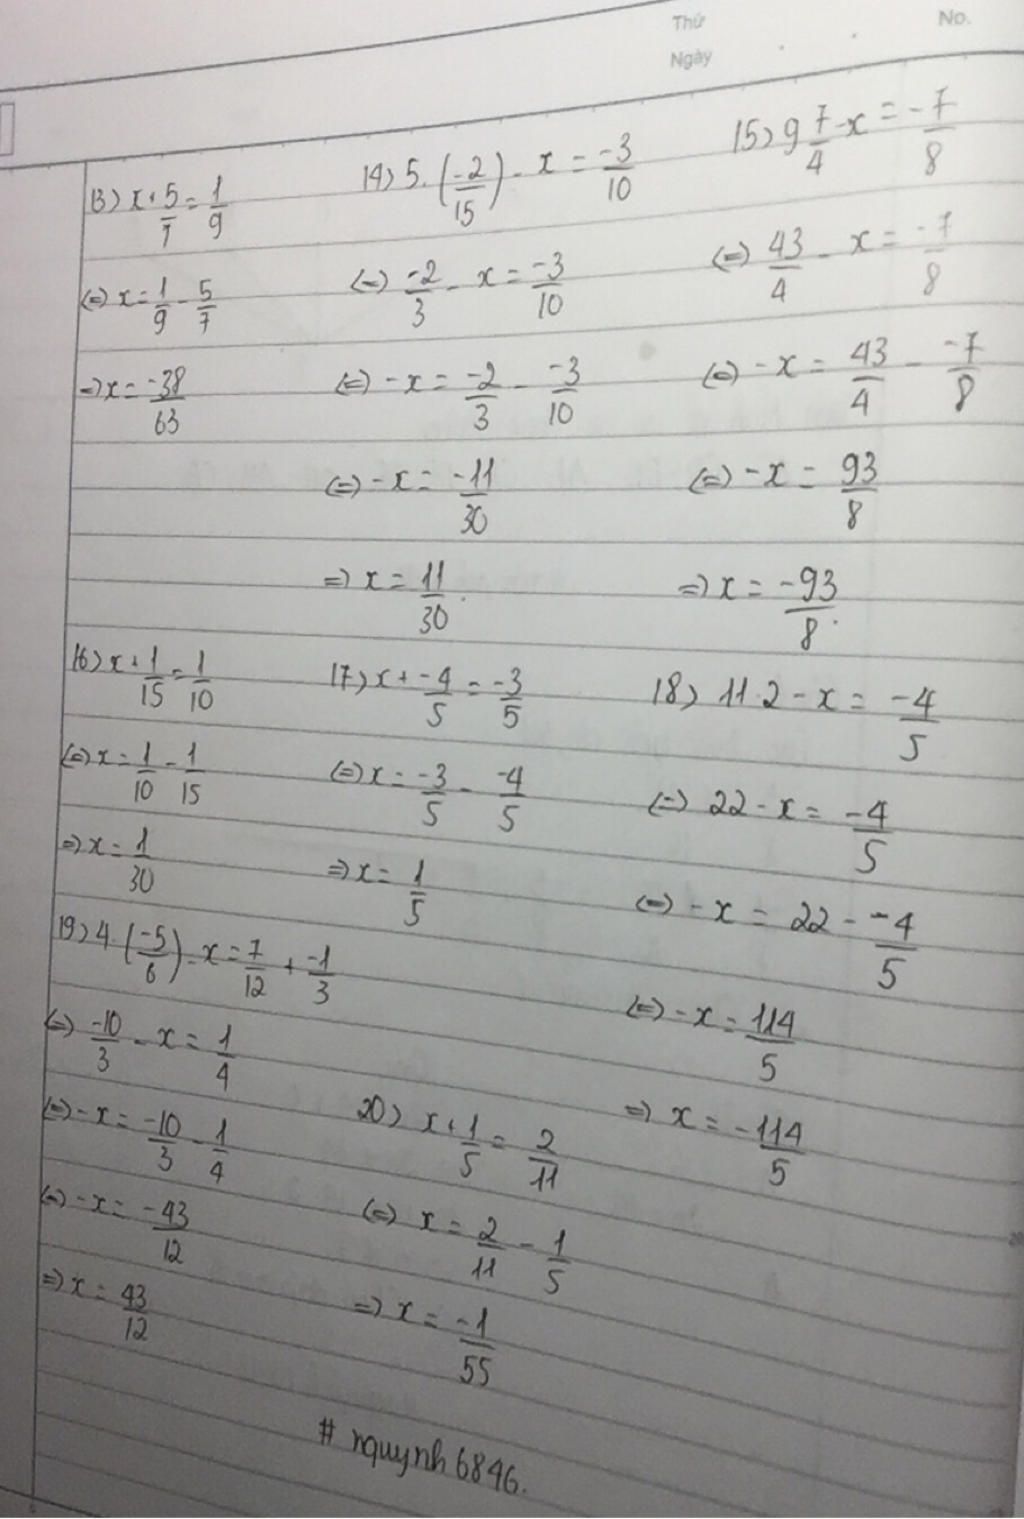 Thứ
No.
Ngày
13) x + 5/7 = 1/9
(=) x = 1/9 - 5/7
=) x = -38/63
14) 5. (-2/15) - x = -3/10
(=) -2/3 - x = -3/10
(=) - x = -2/3 - -3/10
(=) - x = -11/30
=) x = 11/30.
15) 9 7/4 - x = -7/8
(=) 43/4 - x = -7/8
(=) - x = 43/4 - -7/8
(=) - x = 93/8
=) x = -93/8.
16) x + 1/15 = 1/10
(=) x = 1/10 - 1/15
=) x = 1/30
17) x + -4/5 = -3/5
(=) x = -3/5 - -4/5
=) x = 1/5
18) 11.2 - x = -4/5
(=) 22 - x = -4/5
(=) - x = 22 - -4/5
(=) - x = 114/5
=) x = -114/5
19) 4. (-5/6) - x = 7/12 + -1/3
(=) -10/3 - x = 1/4
(=) - x = -10/3 - 1/4
(=) - x = -43/12
=) x = 43/12
20) x + 1/5 = 2/11
(=) x = 2/11 - 1/5
=) x = -1/55
# nquynh6846.